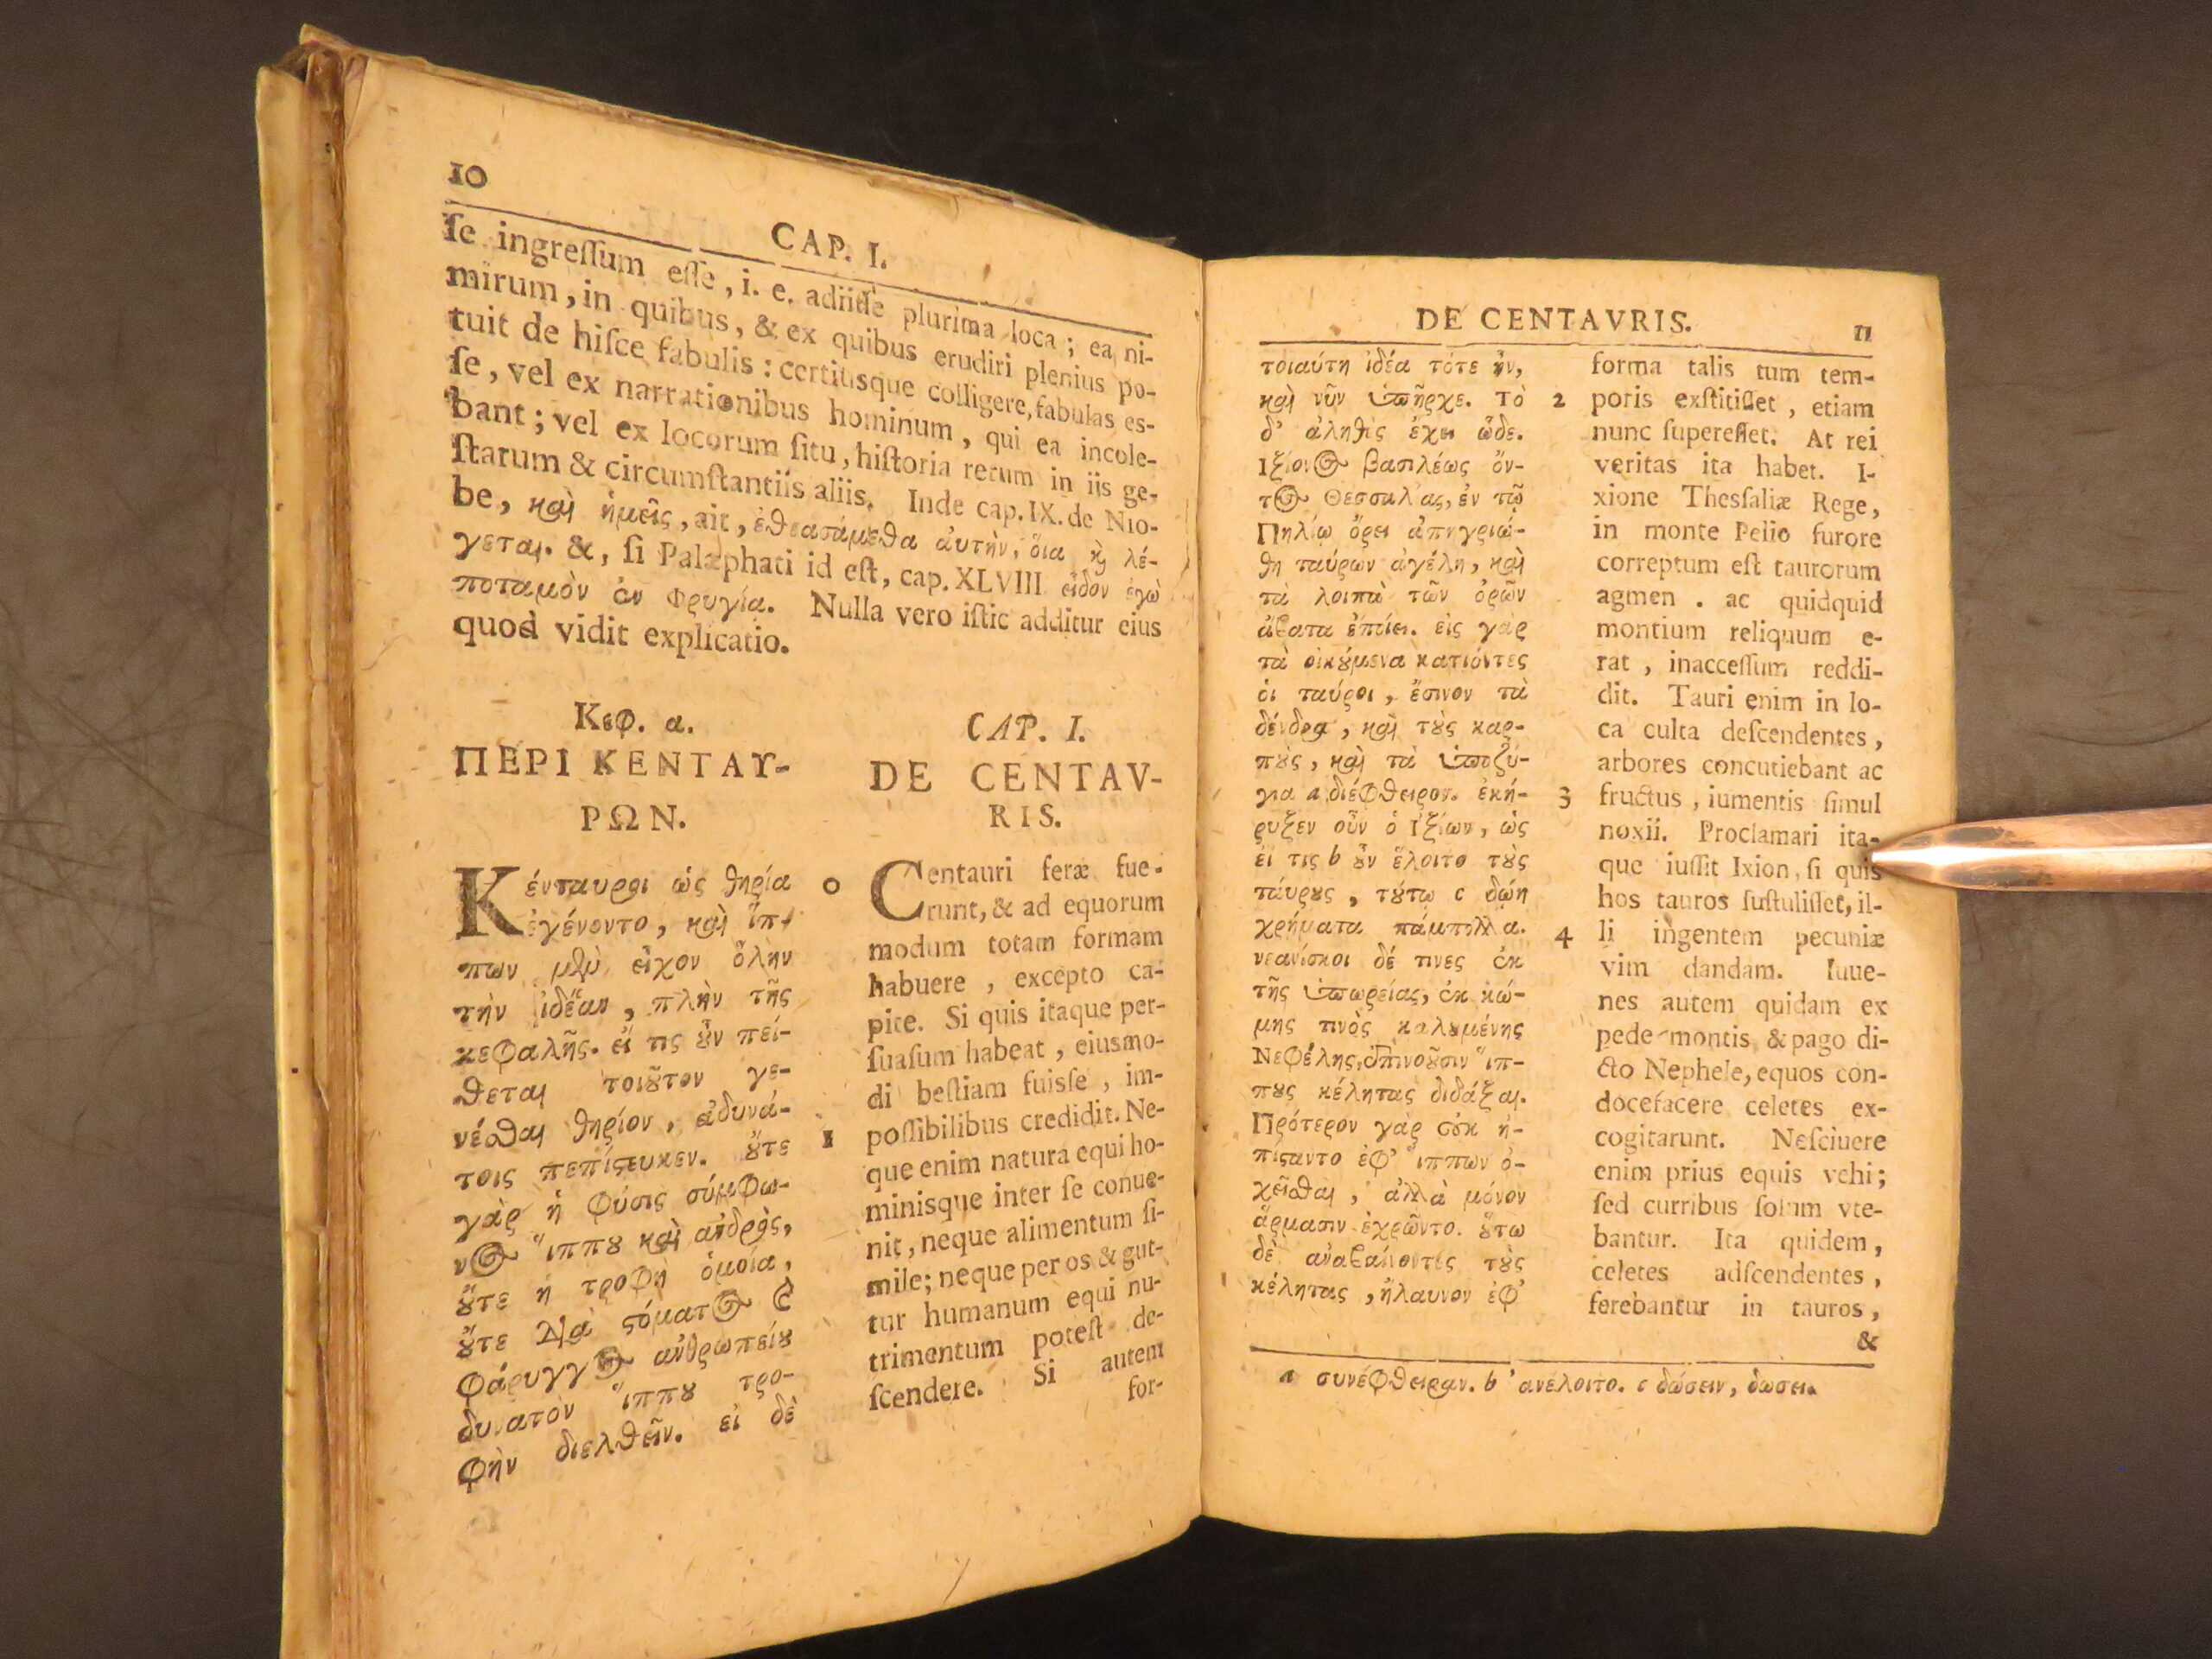 10
CAP. I.
ſe ingreſſum eſſe, i. e. adiiſſe plurima loca; ea ni-
mirum, in quibus, & ex quibus erudiri plenius po-
tuit de hiſce fabulis: certiusque colligere, fabulas es-
ſe, vel ex narrationibus hominum, qui ea incole-
bant; vel ex locorum ſitu, hiſtoria rerum in iis ge-
ſtarum & circumſtantiis aliis. Inde cap. IX. de Nio-
be, καὶ ἡμεῖς, ait, ἐθεασάμεθα ἀυτὴν, ὅια ϗ λέ-
γεται. &, ſi Palæphati id eſt, cap. XLVIII εἶδον ἐγὼ
ποταμὸν ἐν Φρυγίᾳ. Nulla vero iſtic additur eius
quod vidit explicatio.
Κεφ. α.
ΠΕΡΙ ΚΕΝΤΑΥ-
ΡΩΝ.
Κένταυροι ὡς θηρία
ἐγένοντο, καὶ ἵπ-
πων μὲν εἶχον ὅλην
τὴν ἰδέαν, πλὴν τῆς
κεφαλῆς. εἴ τις ȣ̓ν πεί-
θεται τοιȣ̃τον γε-
νέσθαι θηρίον, ἀδυνά-
τοις πεπίϛευκεν. ȣ̓́τε
γὰρ ἡ φύσις σύμφω-
νος ἵππȣ καὶ ἀνδρὸς,
ȣ̓́τε ἡ τροφὴ ὁμοία,
ȣ̓́τε διὰ ϛόματος ϗ
φάρυγγος ἀνθρωπείȣ
δυνατὸν ἵππȣ τρο-
φὴν διελθεῖν. εἰ δὲ
CAP. I.
DE CENTAV-
RIS.
0 Centauri feræ fue-
runt, & ad equorum
modum totam formam
habuere, excepto ca-
pite. Si quis itaque per-
ſuaſum habeat, eiusmo-
di beſtiam fuisſe, im-
poſſibilibus credidit. Ne-
1 que enim natura equi ho-
minisque inter ſe conue-
nit, neque alimentum ſi-
mile; neque per os & gut-
tur humanum equi nu-
trimentum poteſt de-
ſcendere. Si autem
for-
DE CENTAVRIS.
11
τοιαύτη ἰδέα τότε ἦν,
καὶ νῦν ὑπῆρχε. Τὸ
δ' ἀληθὲς ἔχει ὧδε.
Ιξίονος βασιλέως ὄν-
τος Θεσσαλίας, ἐν τῷ
Πηλίῳ ὄρει ἀπηγριώ-
θη ταύρων ἀγέλη, καὶ
τὰ λοιπὰ τῶν ὀρῶν
ἄβατα ἐποίει. εἰς γὰρ
τὰ οἰκȣ́μενα κατιόντες
ὁι ταύροι, ἔσινον τὰ
δένδρα, καὶ τȣ̀ς καρ-
πȣ̀ς, καὶ τὰ ὑποζύ-
για a διέφθειρον. ἐκή-
ρυξεν οὖν ὁ Ἰξίων, ὡς
ἐι τις b ἂν ἕλοιτο τȣ̀ς
τάυρȣς, τȣ́τῳ c δώη
χρήματα πάμπολλα.
νεανίσκοι δέ τινες ἐκ
τῆς ὑπωρείας, ἐκ κώ-
μης τινὸς καλȣμένης
Νεφέλης, ἐπινοȣ̃σιν ἵπ-
πȣς κέλητας διδάξαι.
Πρότερον γὰρ οὐκ ἠ-
πίϛαντο ἐφ' ἵππων ὀ-
χεῖσθαι, ἀλλὰ μόνον
ἅρμασιν ἐχρῶντο. ȣ̔́τω
δὲ ἀναβαίνοντες τȣ̀ς
κέλητας, ἤλαυνον ἐφ'
forma talis tum tem-
2 poris exſtitiſſet, etiam
nunc ſupereſſet. At rei
veritas ita habet. I-
xione Thesſaliæ Rege,
in monte Pelio furore
correptum eſt taurorum
agmen. ac quidquid
montium reliquum e-
rat, inacceſſum reddi-
dit. Tauri enim in lo-
ca culta deſcendentes,
arbores concutiebant ac
3 fructus, iumentis ſimul
noxii. Proclamari ita-
que iuſſit Ixion, ſi quis
hos tauros ſuſtuliſſet, il-
4 li ingentem pecuniæ
vim dandam. Iuue-
nes autem quidam ex
pede montis, & pago di-
cto Nephele, equos con-
docefacere celetes ex-
cogitarunt. Neſciuere
enim prius equis vehi;
ſed curribus ſolum vte-
bantur. Ita quidem,
celetes adſcendentes,
ferebantur in tauros,
&
a συνέφθειραν. b ἀνέλοιτο. c δώσειν, δωσει.